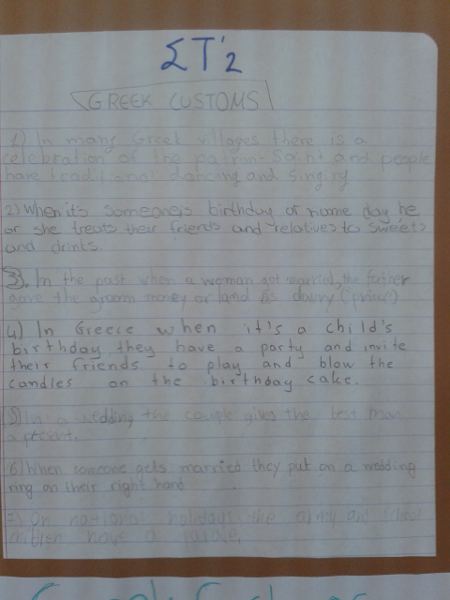 ΣΤ'2
GREEK CUSTOMS
1) In many Greek villages there is a
celebration of the patrin-Saint and people
have traditional dancing and singing
2) When it's someone's birthday or name day he
or she treats their friends and relatives to sweets
and drinks.
3. In the past when a woman got married, the father
gave the groom money or land as
4) In Greece when it's a child's
birthday they have a party and invite
their friends to play and blow the
candles on the birthday cake.
5) In a wedding the couple gives the best man
a present.
6) When someone gets married they put on a wedding
ring on their right hand
7) On national holidays the army and
have a parade.